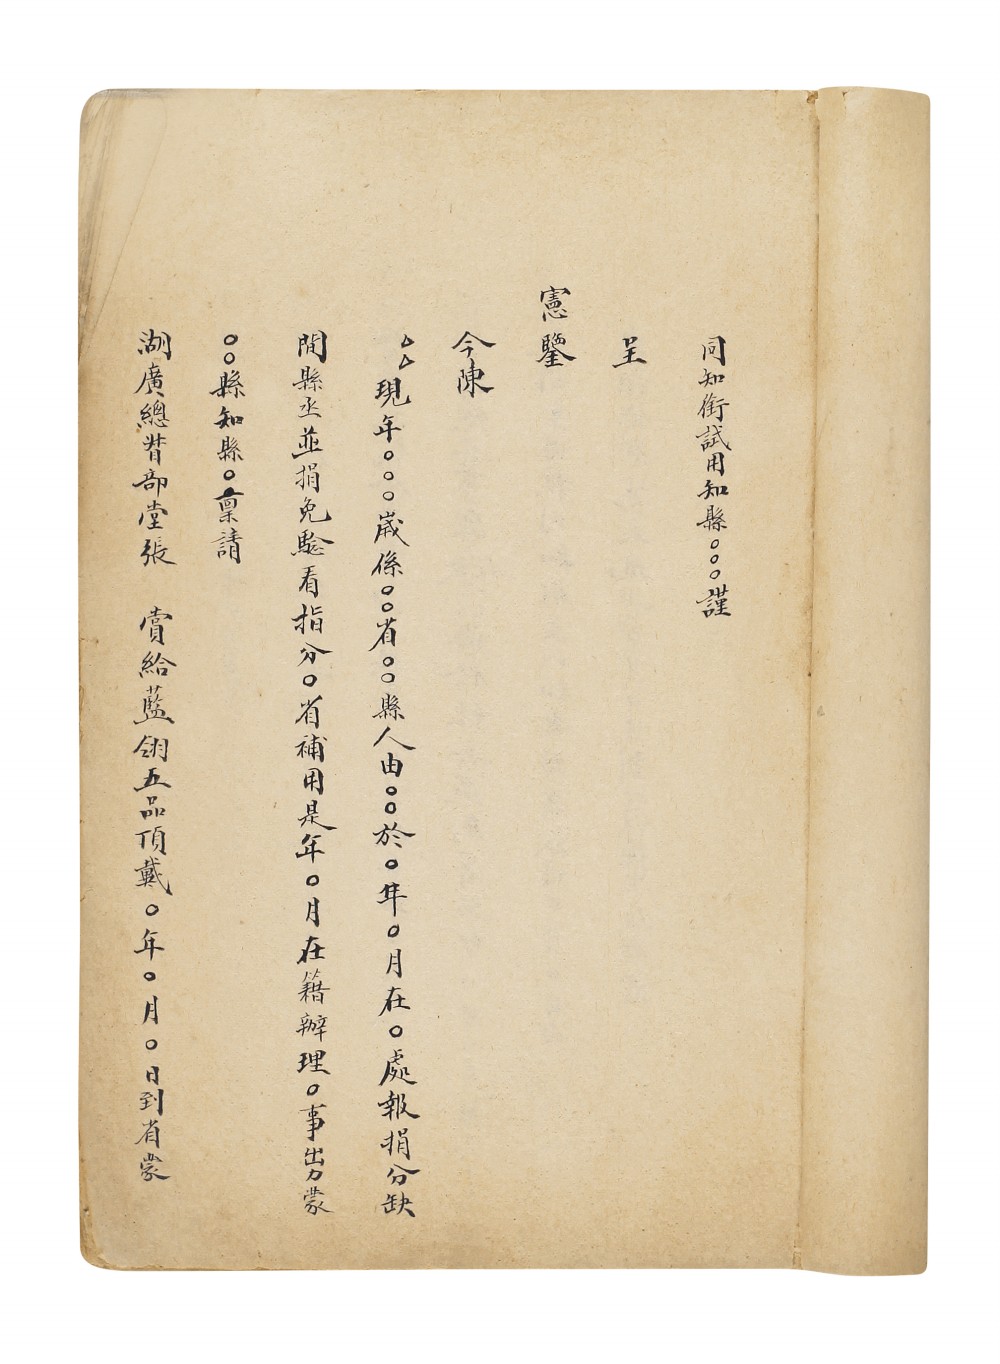 同知銜試用知縣○○○謹
呈
憲鑒
今陳
△△現年○○○歲係○○省○○縣人由○○於○年○月在○處報捐分缺
間縣丞並捐免驗看指分○省補用是年○月在籍辦理○事出力蒙
○○縣知縣○稟請
湖廣總督部堂張　賞給藍翎五品頂戴○年○月○日到省蒙